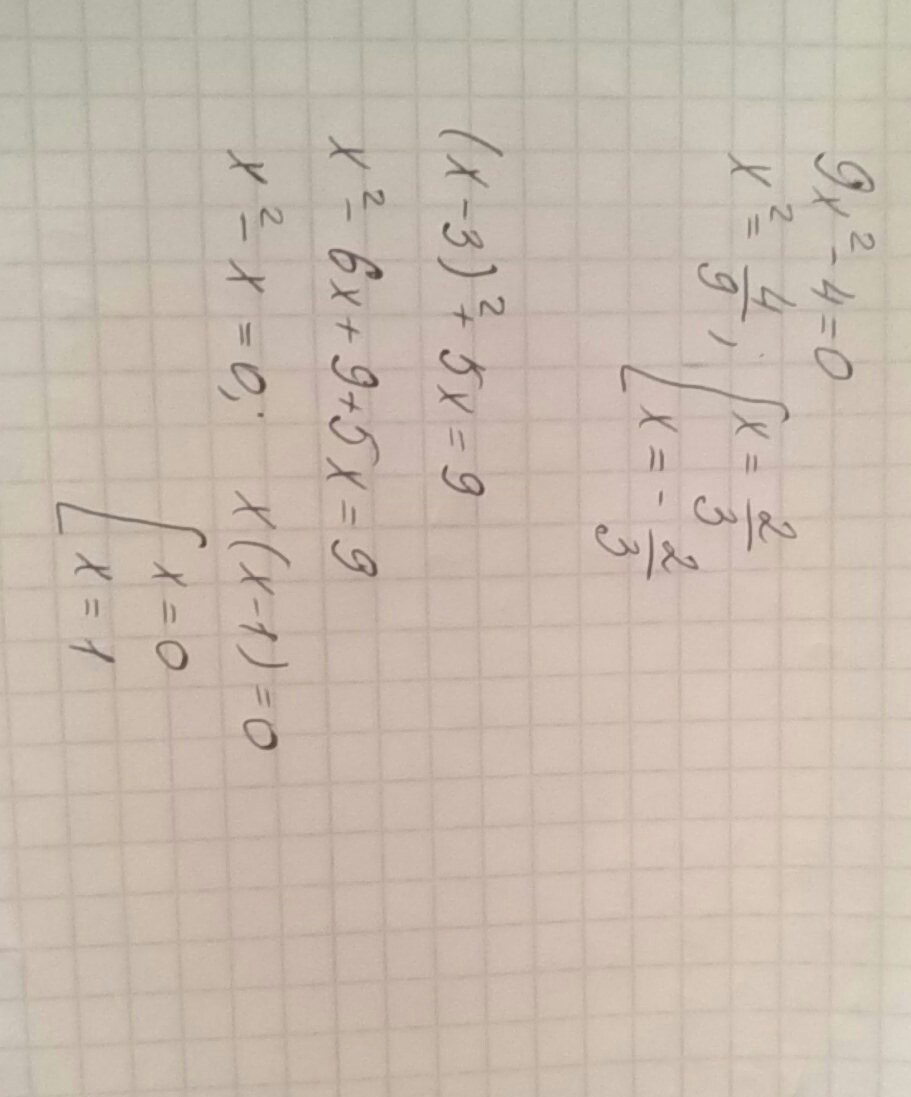 9x² - 4 = 0
x² = 4/9 ; [ x = 2/3
x = - 2/3
(x - 3)² + 5x = 9
x² - 6x + 9 + 5x = 9
x² - x = 0; x(x - 1) = 0
[ x = 0
x = 1